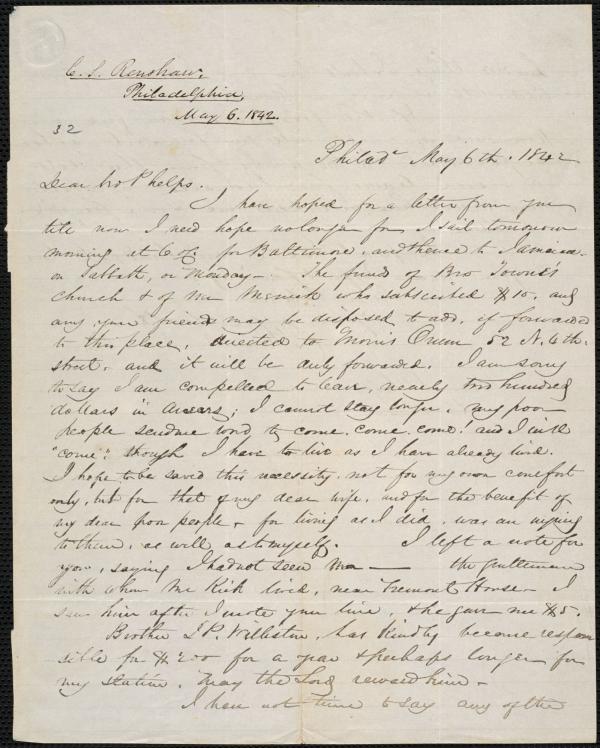 C. S. Renshaw,
Philadelphia,
May 6. 1842.
32
Philad<sup>a</sup> May 6th. 1842
Dear bro Phelps.
I have hoped for a letter from you
till now I need hope no longer for I sail tomorrow
morning at 6 oc for Baltimore, and thence to Jamaica
on Sabbath, or Monday - The funds of Bro Towne's
church & of Mr Merrick who subscribed $10. and
any your friends may be disposed to add, if forwarded
to this place, directed to Morris 52 N. 4th
street, and it will be duly forwarded. I am sorry
to say I am compelled to leave, nearly two hundred
dollars in arrears; I cannot stay longer, my poor
people send me word to come. come. come! and I will
"come", though I have to live as I have already lived.
I hope to be saved this necessity, not for my own comfort
only, but for that of my dear wife, and for the benefit of
my dear poor people - for living as I did, was an injury
to them, as well as to myself. I left a note for
you, saying I had not seen the gentleman
with whom Mr Kirk lived, near Tremont House - I
saw him after I wrote your line, & he gave me $5.
Brother J P. Williston, has kindly become respon
sible for $200 for a year & perhaps longer for
my station. May the Lord reward him -
I have not time to say any of the